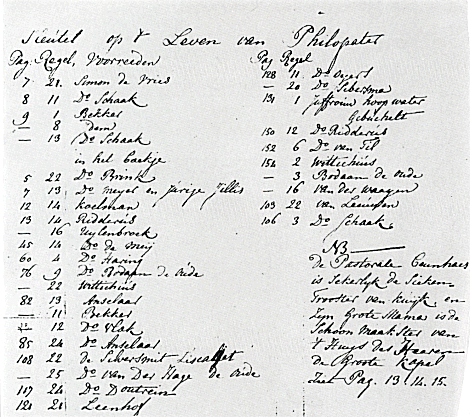 Sleutel op 't Leven van Philopater
Pag. Regel, Voorreeden
7 21. Simon de Vries
8 11 Do Schaak
9 1 Bekker
— 8 Dam
— 13 Do Schaak
in het boekje
5 22 Do Brink
7 13 Do Meyer en Jarige Jillis
12 14 Koelman
13 14 Ridderus
— 16 Uylenbroek
45 14 Do de Meij
60 4 Do Haring
76 9 Do Bodaan de Oude
— 22 Wittichius
82 13 Anselaar
— 11 Bekker
— 12 Do Vlak
85 24 Do Anselaar
108 22 de Schersmit
— 25 Do van der Hage de Oude
117 24 Do Doutrein
121 21 Leenhof
Pag Regel
128 11 Do
— 20 Do
131 1 Juffrouw hoog water
Gebichelt
150 12 Do Ridderus
152 6 Do van Til
154 2 Wittichius
— 3 Bodaan de Oude
— 16 van der Waayen
103 22 van Leeuwen
106 3 Do Schaak
NB
De Pastorale
is Sekerlyk de Sieken
Trooster van Kuijk en
Zijn Groote Mama is de
Schoonmaakster van
't Huys der
De Groote Kapel
Ziet Pag. 13. 14. 15.